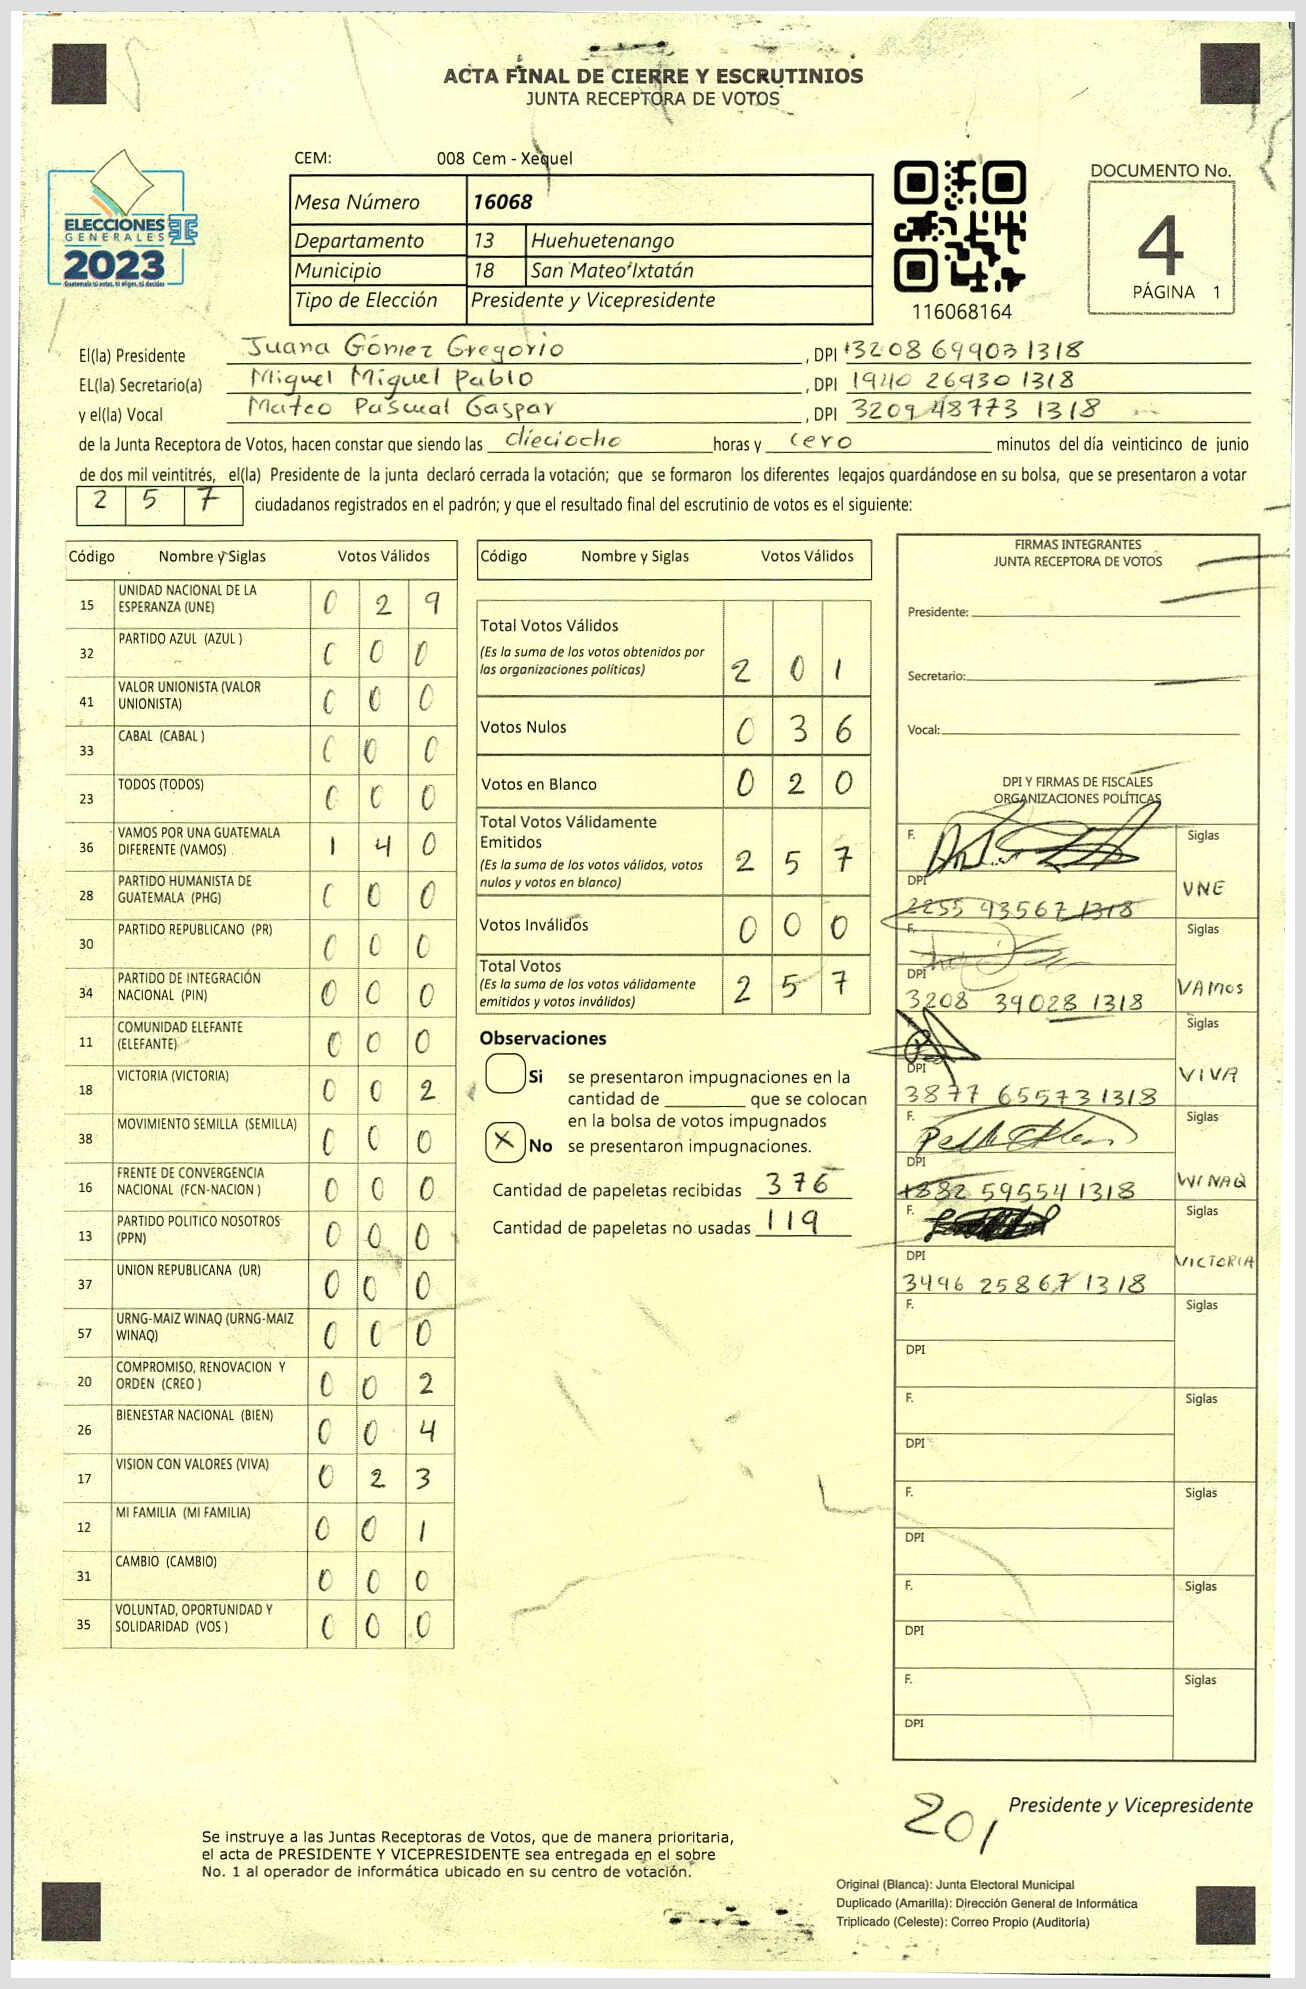 ACTA FINAL DE CIERRE Y ESCRUTINIOS
JUNTA RECEPTORA DE VOTOS
ELECCIONES
GENERALES
2023
Guatemala tú votas, tú eliges, tú decides
CEM: 008 Cem - Xequel
Mesa Número 16068
Departamento 13 Huehuetenango
Municipio 18 San Mateo Ixtatán
Tipo de Elección Presidente y Vicepresidente
116068164
DOCUMENTO No.
4
PÁGINA 1
El(la) Presidente Juana Gómez Gregorio, DPI 3208 69903 1318
EL(la) Secretario(a) Miguel Miguel Pablo, DPI 1940 26930 1318
y el(la) Vocal Mateo Pascual Gaspar, DPI 3209 48773 1318
de la Junta Receptora de Votos, hacen constar que siendo las dieciocho horas y cero minutos del día veinticinco de junio
de dos mil veintitrés, el(la) Presidente de la junta declaró cerrada la votación; que se formaron los diferentes legajos guardándose en su bolsa, que se presentaron a votar
2 5 7 ciudadanos registrados en el padrón; y que el resultado final del escrutinio de votos es el siguiente:
Código Nombre y Siglas Votos Válidos
15 UNIDAD NACIONAL DE LA ESPERANZA (UNE) 0 2 9
32 PARTIDO AZUL (AZUL ) 0 0 0
41 VALOR UNIONISTA (VALOR UNIONISTA) 0 0 0
33 CABAL (CABAL ) 0 0 0
23 TODOS (TODOS) 0 0 0
36 VAMOS POR UNA GUATEMALA DIFERENTE (VAMOS) 1 4 0
28 PARTIDO HUMANISTA DE GUATEMALA (PHG) 0 0 0
30 PARTIDO REPUBLICANO (PR) 0 0 0
34 PARTIDO DE INTEGRACIÓN NACIONAL (PIN) 0 0 0
11 COMUNIDAD ELEFANTE (ELEFANTE) 0 0 0
18 VICTORIA (VICTORIA) 0 0 2
38 MOVIMIENTO SEMILLA (SEMILLA) 0 0 0
16 FRENTE DE CONVERGENCIA NACIONAL (FCN-NACION ) 0 0 0
13 PARTIDO POLITICO NOSOTROS (PPN) 0 0 0
37 UNION REPUBLICANA (UR) 0 0 0
57 URNG-MAIZ WINAQ (URNG-MAIZ WINAQ) 0 0 0
20 COMPROMISO, RENOVACION Y ORDEN (CREO ) 0 0 2
26 BIENESTAR NACIONAL (BIEN) 0 0 4
17 VISION CON VALORES (VIVA) 0 2 3
12 MI FAMILIA (MI FAMILIA) 0 0 1
31 CAMBIO (CAMBIO) 0 0 0
35 VOLUNTAD, OPORTUNIDAD Y SOLIDARIDAD (VOS ) 0 0 0
Código Nombre y Siglas Votos Válidos
Total Votos Válidos
(Es la suma de los votos obtenidos por
las organizaciones políticas) 2 0 1
Votos Nulos 0 3 6
Votos en Blanco 0 2 0
Total Votos Válidamente
Emitidos
(Es la suma de los votos válidos, votos
nulos y votos en blanco) 2 5 7
Votos Inválidos 0 0 0
Total Votos
(Es la suma de los votos válidamente
emitidos y votos inválidos) 2 5 7
Observaciones
Si se presentaron impugnaciones en la
cantidad de ________ que se colocan
en la bolsa de votos impugnados
X No se presentaron impugnaciones.
Cantidad de papeletas recibidas 376
Cantidad de papeletas no usadas 119
FIRMAS INTEGRANTES
JUNTA RECEPTORA DE VOTOS
Presidente:
Secretario:
Vocal:
DPI Y FIRMAS DE FISCALES
ORGANIZACIONES POLÍTICAS
F. Siglas
DPI UNE
2255 43567 1318
F. Siglas
DPI VAMOS
3208 39028 1318
Siglas
DPI VIVA
3877 65573 1318
F. Siglas
DPI WINAQ
1882 59554 1318
F. Siglas
DPI VICTORIA
3496 25867 1318
F. Siglas
DPI
F. Siglas
DPI
F. Siglas
DPI
F. Siglas
DPI
F. Siglas
DPI
201
Presidente y Vicepresidente
Se instruye a las Juntas Receptoras de Votos, que de manera prioritaria,
el acta de PRESIDENTE Y VICEPRESIDENTE sea entregada en el sobre
No. 1 al operador de informática ubicado en su centro de votación.
Original (Blanca): Junta Electoral Municipal
Duplicado (Amarilla): Dirección General de Informática
Triplicado (Celeste): Correo Propio (Auditoría)